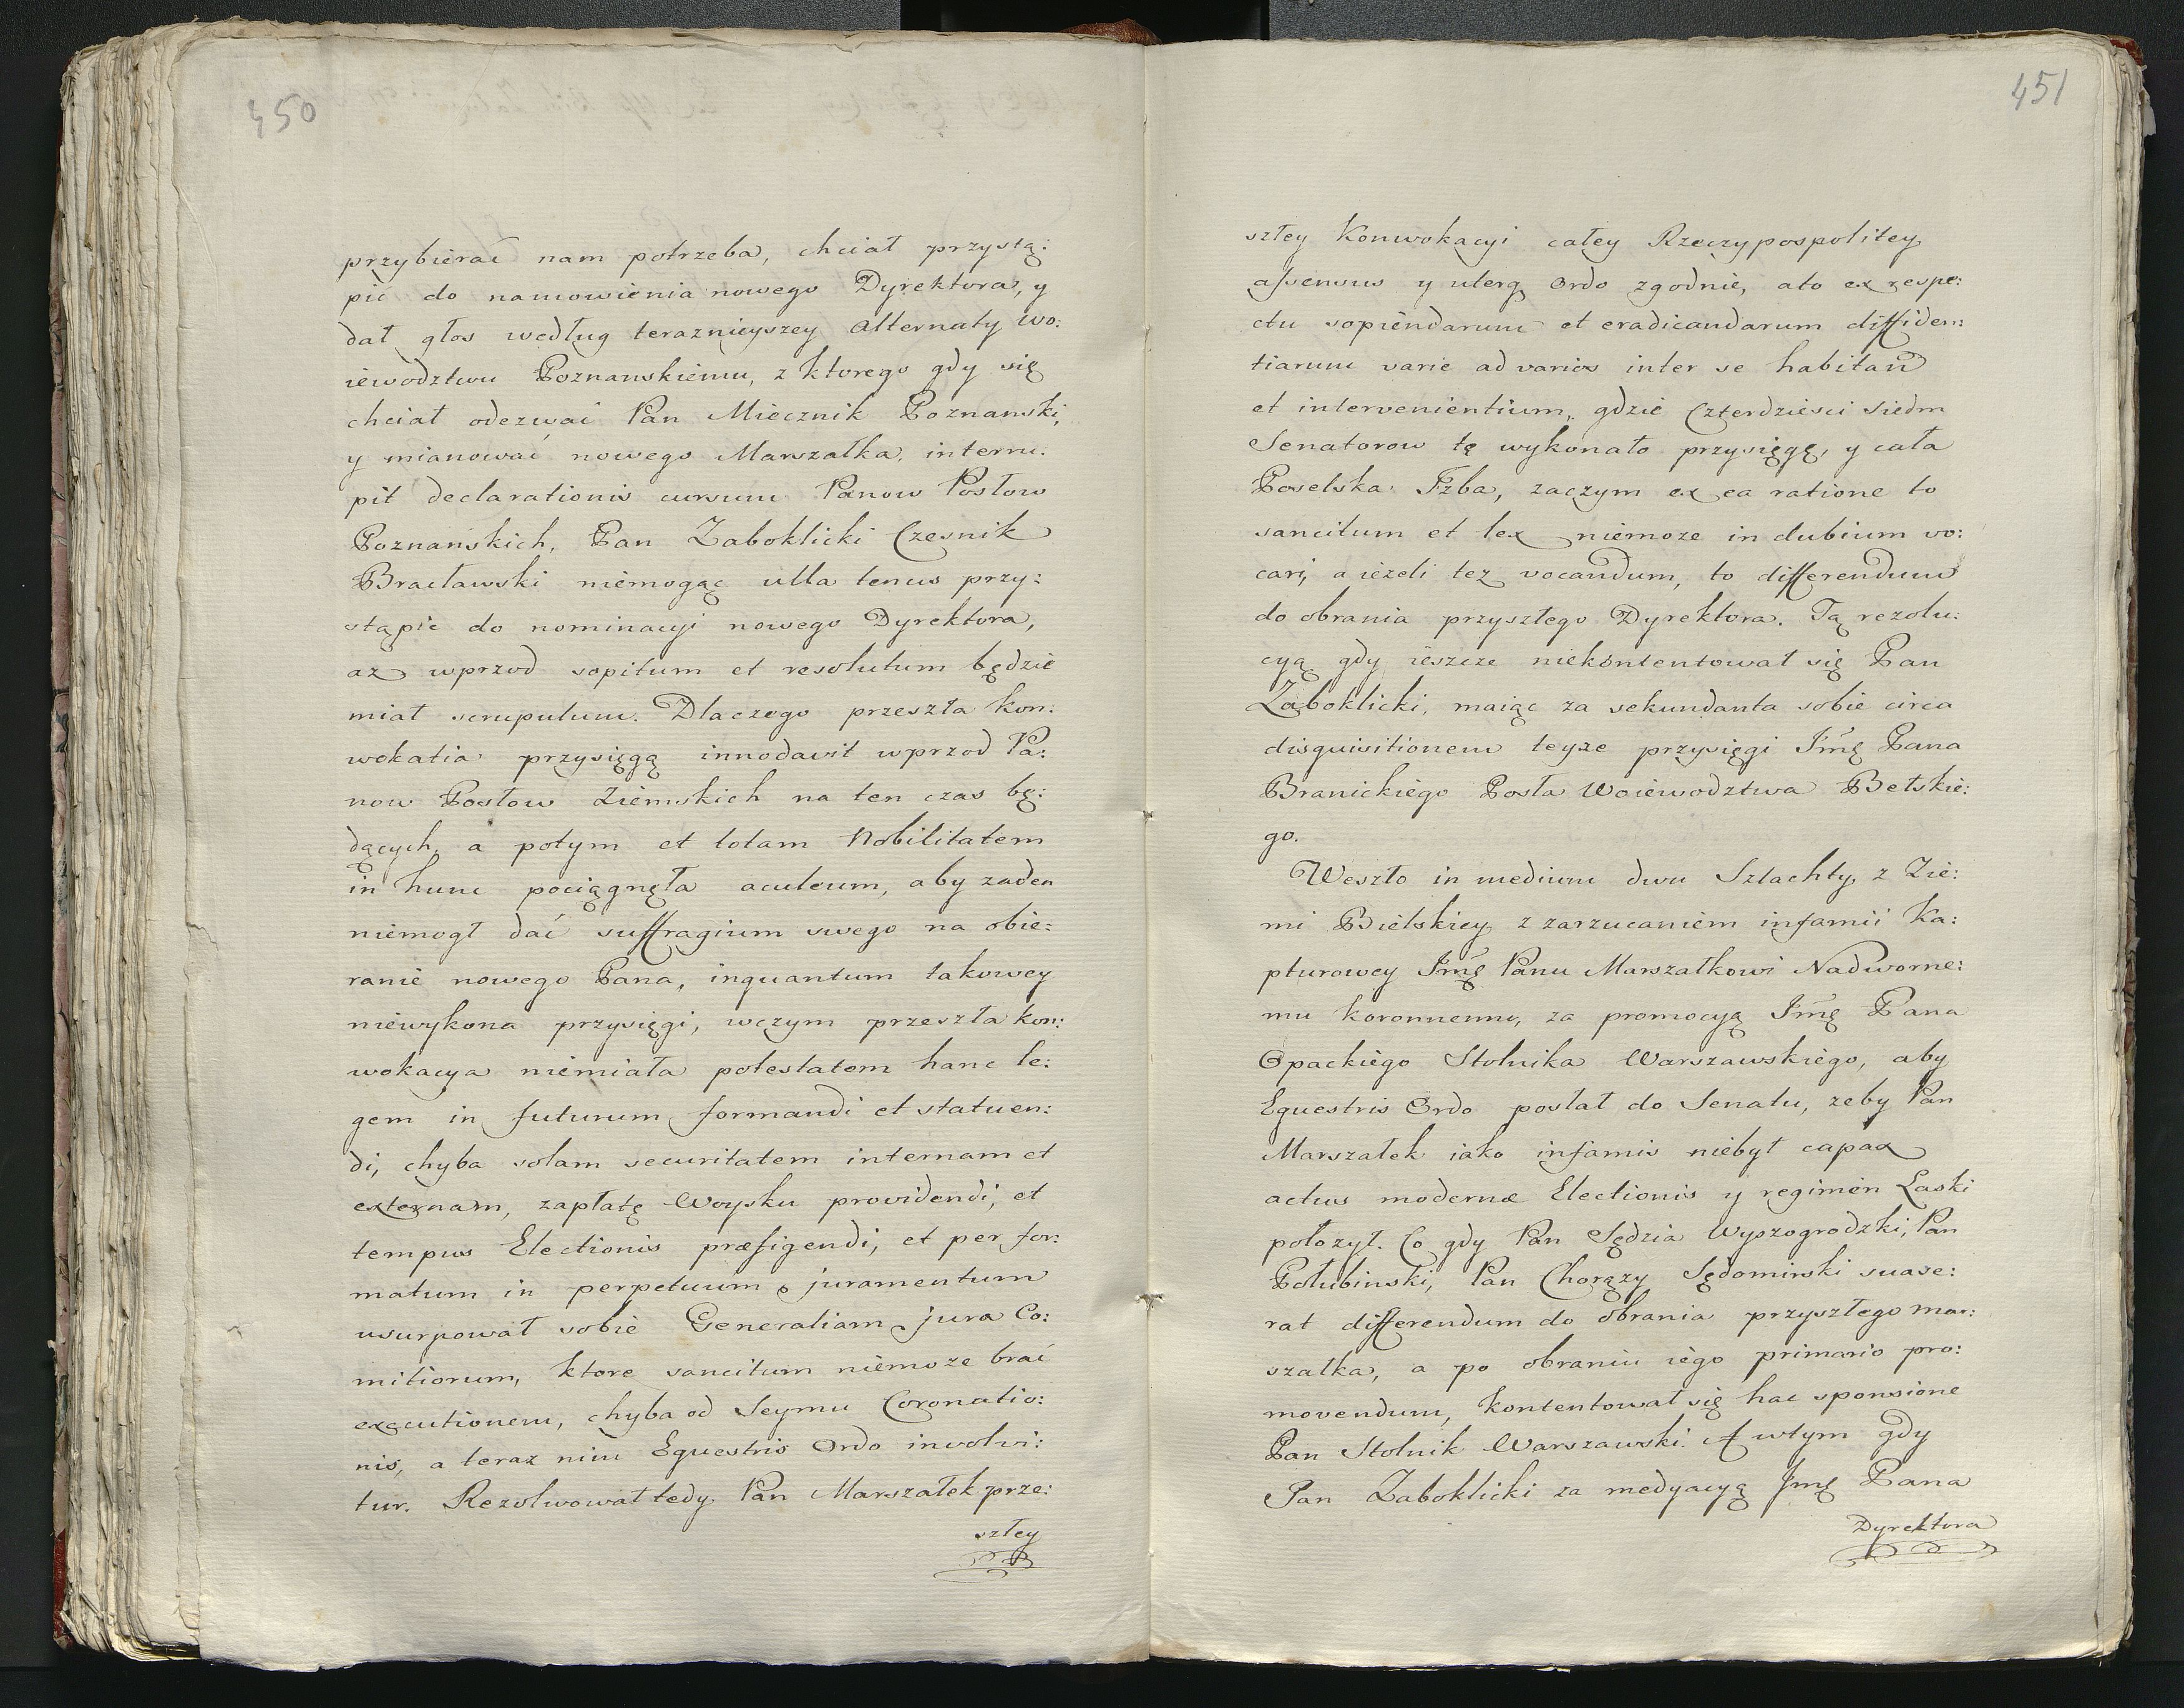 450
przybierać nam potrzeba, chciał przystą:
pić do namowienia nowego Dyrektora, y
dał głos według teraznieyszey alternaty Wo:
iewodztwu Poznanskiemu, z ktorego gdy się
chciał odezwać Pan Miecznik Poznanski,
y mianować nowego Marszałka, interru:
pit declarationis cursum Panow Posłow
Poznanskich, Pan Zaboklicki Czesnik
Bracławski niemogąc ulla tenus przy:
stąpić do nominacyi nowego Dyrektora,
az wprzod sopitum et resolutum będzie
miał scrupulum. Dlaczego przeszła kon:
wokatia przysięgą innodavit wprzod Pa:
now Posłow Ziemskich na ten czas bę:
dących, a potym et totam Nobilitatem
in hunc pociągnęła aculeum, aby zaden
niemogł dać suffragium swego na obie:
ranie nowego Pana, inquantum takowey
niewykona przysięgi, wczym przeszła kon:
wokacya niemiała potestatem hanc le:
gem in futurum formandi et statuen:
di, chyba solam securitatem internam et
externam, zapłatę Woysku providendi, et
tempus Electionis præfigendi, et per for:
matum in perpetuum juramentum
usurpował sobie Generaliam jura Co:
mitiorum, ktore sancitum niemoze brać
executionem, chyba od Seymu Coronatio:
nis, a teraz nim Equestris Ordo involvi:
tur. Rezolwował tedy Pan Marszałek prze:
szłey
451
szłey Konwokacyi całey Rzeczypospolitey
assensus y uterq Ordo zgodnie, ato ex respe:
ctu sopiendarum et eradicandarum diffiden:
tiarum varie ad varios inter se habitan
et intervenientium, gdzie Czterdziesci Siedm
Senatorow tę wykonało przysięgę, y cała
Poselska Izba, zaczym ex ea ratione to
sancitum et lex niemoze in dubium vo:
cari, a iezeli tez vocandum, to differendum
do obrania przyszłego Dyrektora. Tą rezolu:
cyą gdy ieszcze niekontentował się Pan
Zaboklicki, maiąc za sekundanta sobie circa
disquisitionem teyze przysięgi Jmę Pana
Branickiego Posła Woiewodztwa Bełskie:
go.
Weszło in medium dwu Szlachty z Zie:
mi Bielskiey z zarzucaniem infamii Ka:
pturowey Jmę Panu Marszałkowi Nadworne:
mu koronnemu, za promocyą Jmę Pana
Opackiego Stolnika Warszawskiego, aby
Equestris Ordo posłał do Senatu, zeby Pan
Marszałek iako infamis niebył capax
actus modernæ Electionis y regimen Laski
połozył. Co gdy Pan Sędzia Wyszogrodzki, Pan
Połubinski, Pan Chorązy Sędomirski suase:
rat differendum do obrania przyszłego mar:
szałka, a po obraniu iego primario pro:
movendum, kontentował się hac sponsione
Pan Stolnik Warszawski. A wtym gdy
Pan Zaboklicki za medyacyą Jmę Pana
Dyrektora